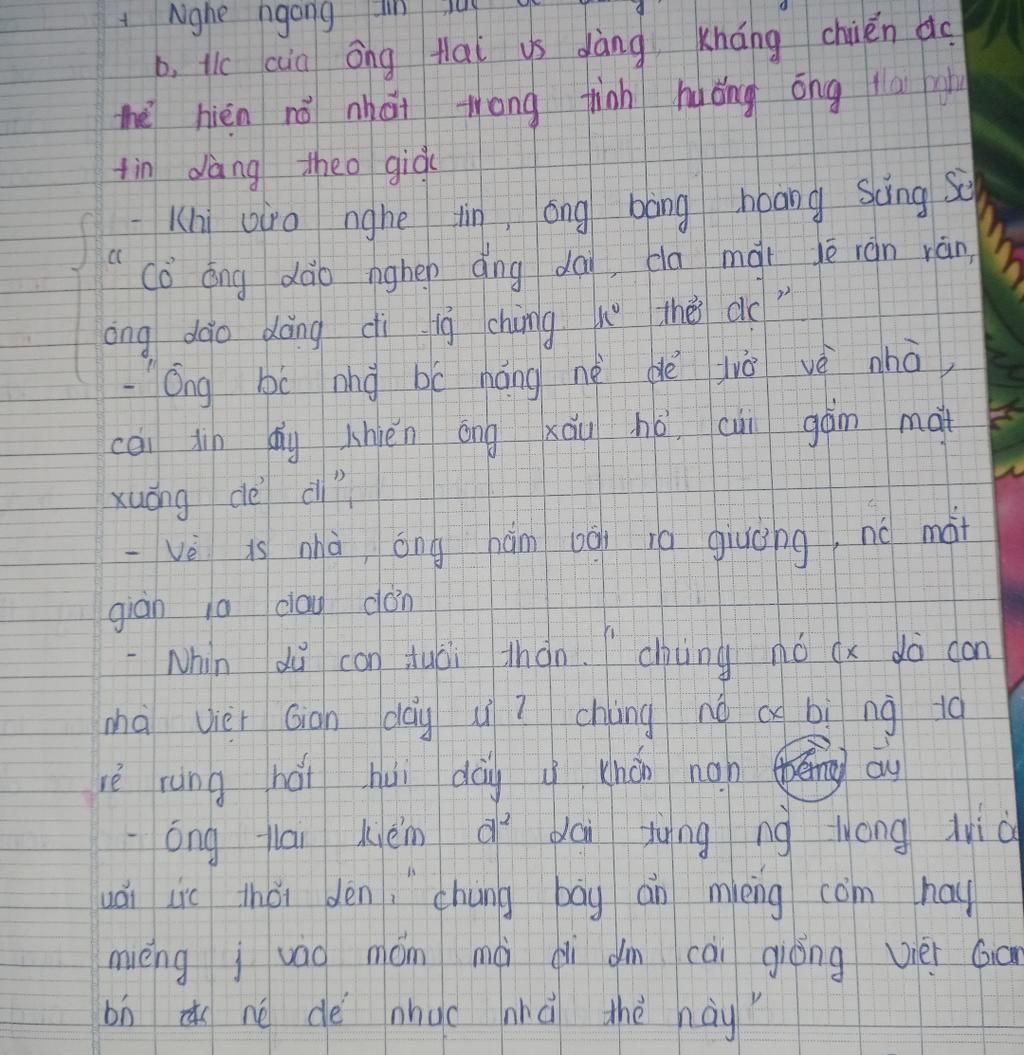 + Nghe ngóng tin tức
b, t/c của ông Hai vs làng kháng chiến đc
thể hiện rõ nhất trong tình huống ông Hai nghe
tin làng theo giặc
- Khi vừa nghe tin, ông bàng hoàng sững sờ
"Cổ ông lão nghẹn ắng lại, da mặt tê rân rân,
ông lão lặng đi tg chừng ko thở đc"
- "Ông bc nhg bc nặng nề để trở về nhà,
cái tin ấy khiến ông xấu hổ, cúi gằm mặt
xuống để đi",
- Về ts nhà, ông nằm vật ra giường, nc mắt
giàn ra đau đớn
- Nhìn lũ con tủi thân. "chúng nó cx là con
nhà Việt Gian đấy ư? chúng nó cx bị ng ta
rẻ rúng hắt hủi đấy ư khốn nạn bằng ấy
- Ông Hai kiểm đ² lại từng ng trong trí
uất ức thốt lên: "chúng bay ăn miếng cơm hay
miếng j vào mồm mà đi lm cái giống Việt Gian
bn nc để nhục nhã thế này"